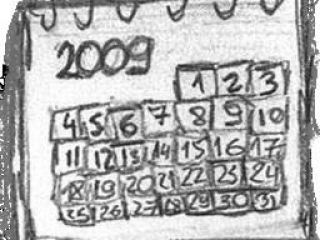 2009
1 2 3
4 5 6 7 8 9 10
11 12 13 14 15 16 17
18 19 20 21 22 23 24
25 26 27 28 29 30 31